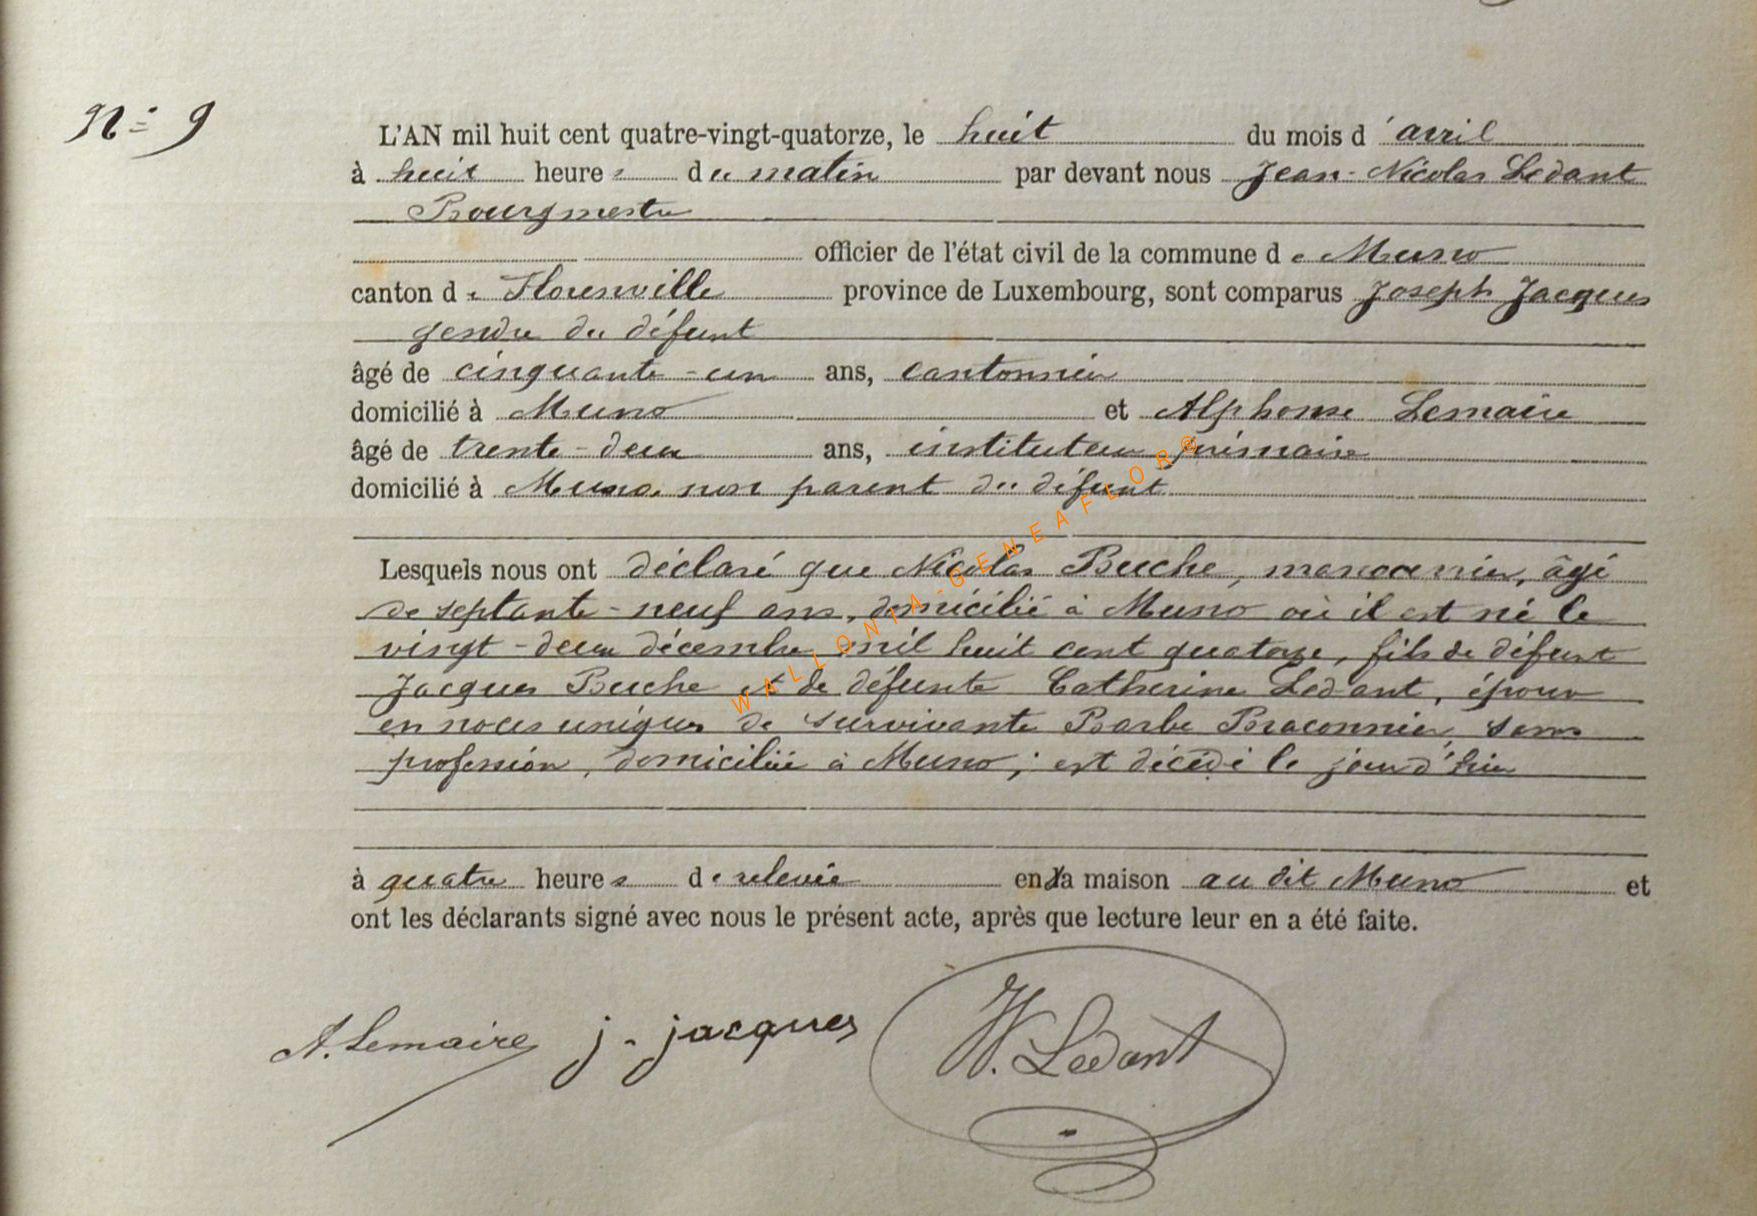 N° 9
L'AN mil huit cent quatre-vingt-quatorze, le huit du mois d'avril
à huit heures du matin par devant nous Jean-Nicolas Ledant
Bourgmestre
officier de l'état civil de la commune de Muno
canton de Florenville province de Luxembourg, sont comparus Joseph Jacques
gendre du défunt
âgé de cinquante-un ans, cantonnier
domicilié à Muno et Alphonse Lemaire
âgé de trente-deux ans, instituteur primaire
domicilié à Muno, non parent du défunt
Lesquels nous ont déclaré que Nicolas Buche, manœuvrier, âgé
de septante-neuf ans, domicilié à Muno où il est né le
vingt-deux décembre mil huit cent quatorze, fils de défunt
Jacques Buche et de défunte Catherine Ledant, époux
en noces uniques de survivante Barbe Braconnier, sans
profession, domiciliée à Muno; est décédé le jour d'hier
à quatre heures de relevée en la maison au dit Muno et
ont les déclarants signé avec nous le présent acte, après que lecture leur en a été faite.
A. Lemaire j. jacques N. Ledant
WALLONIA-GENEAFLOR®